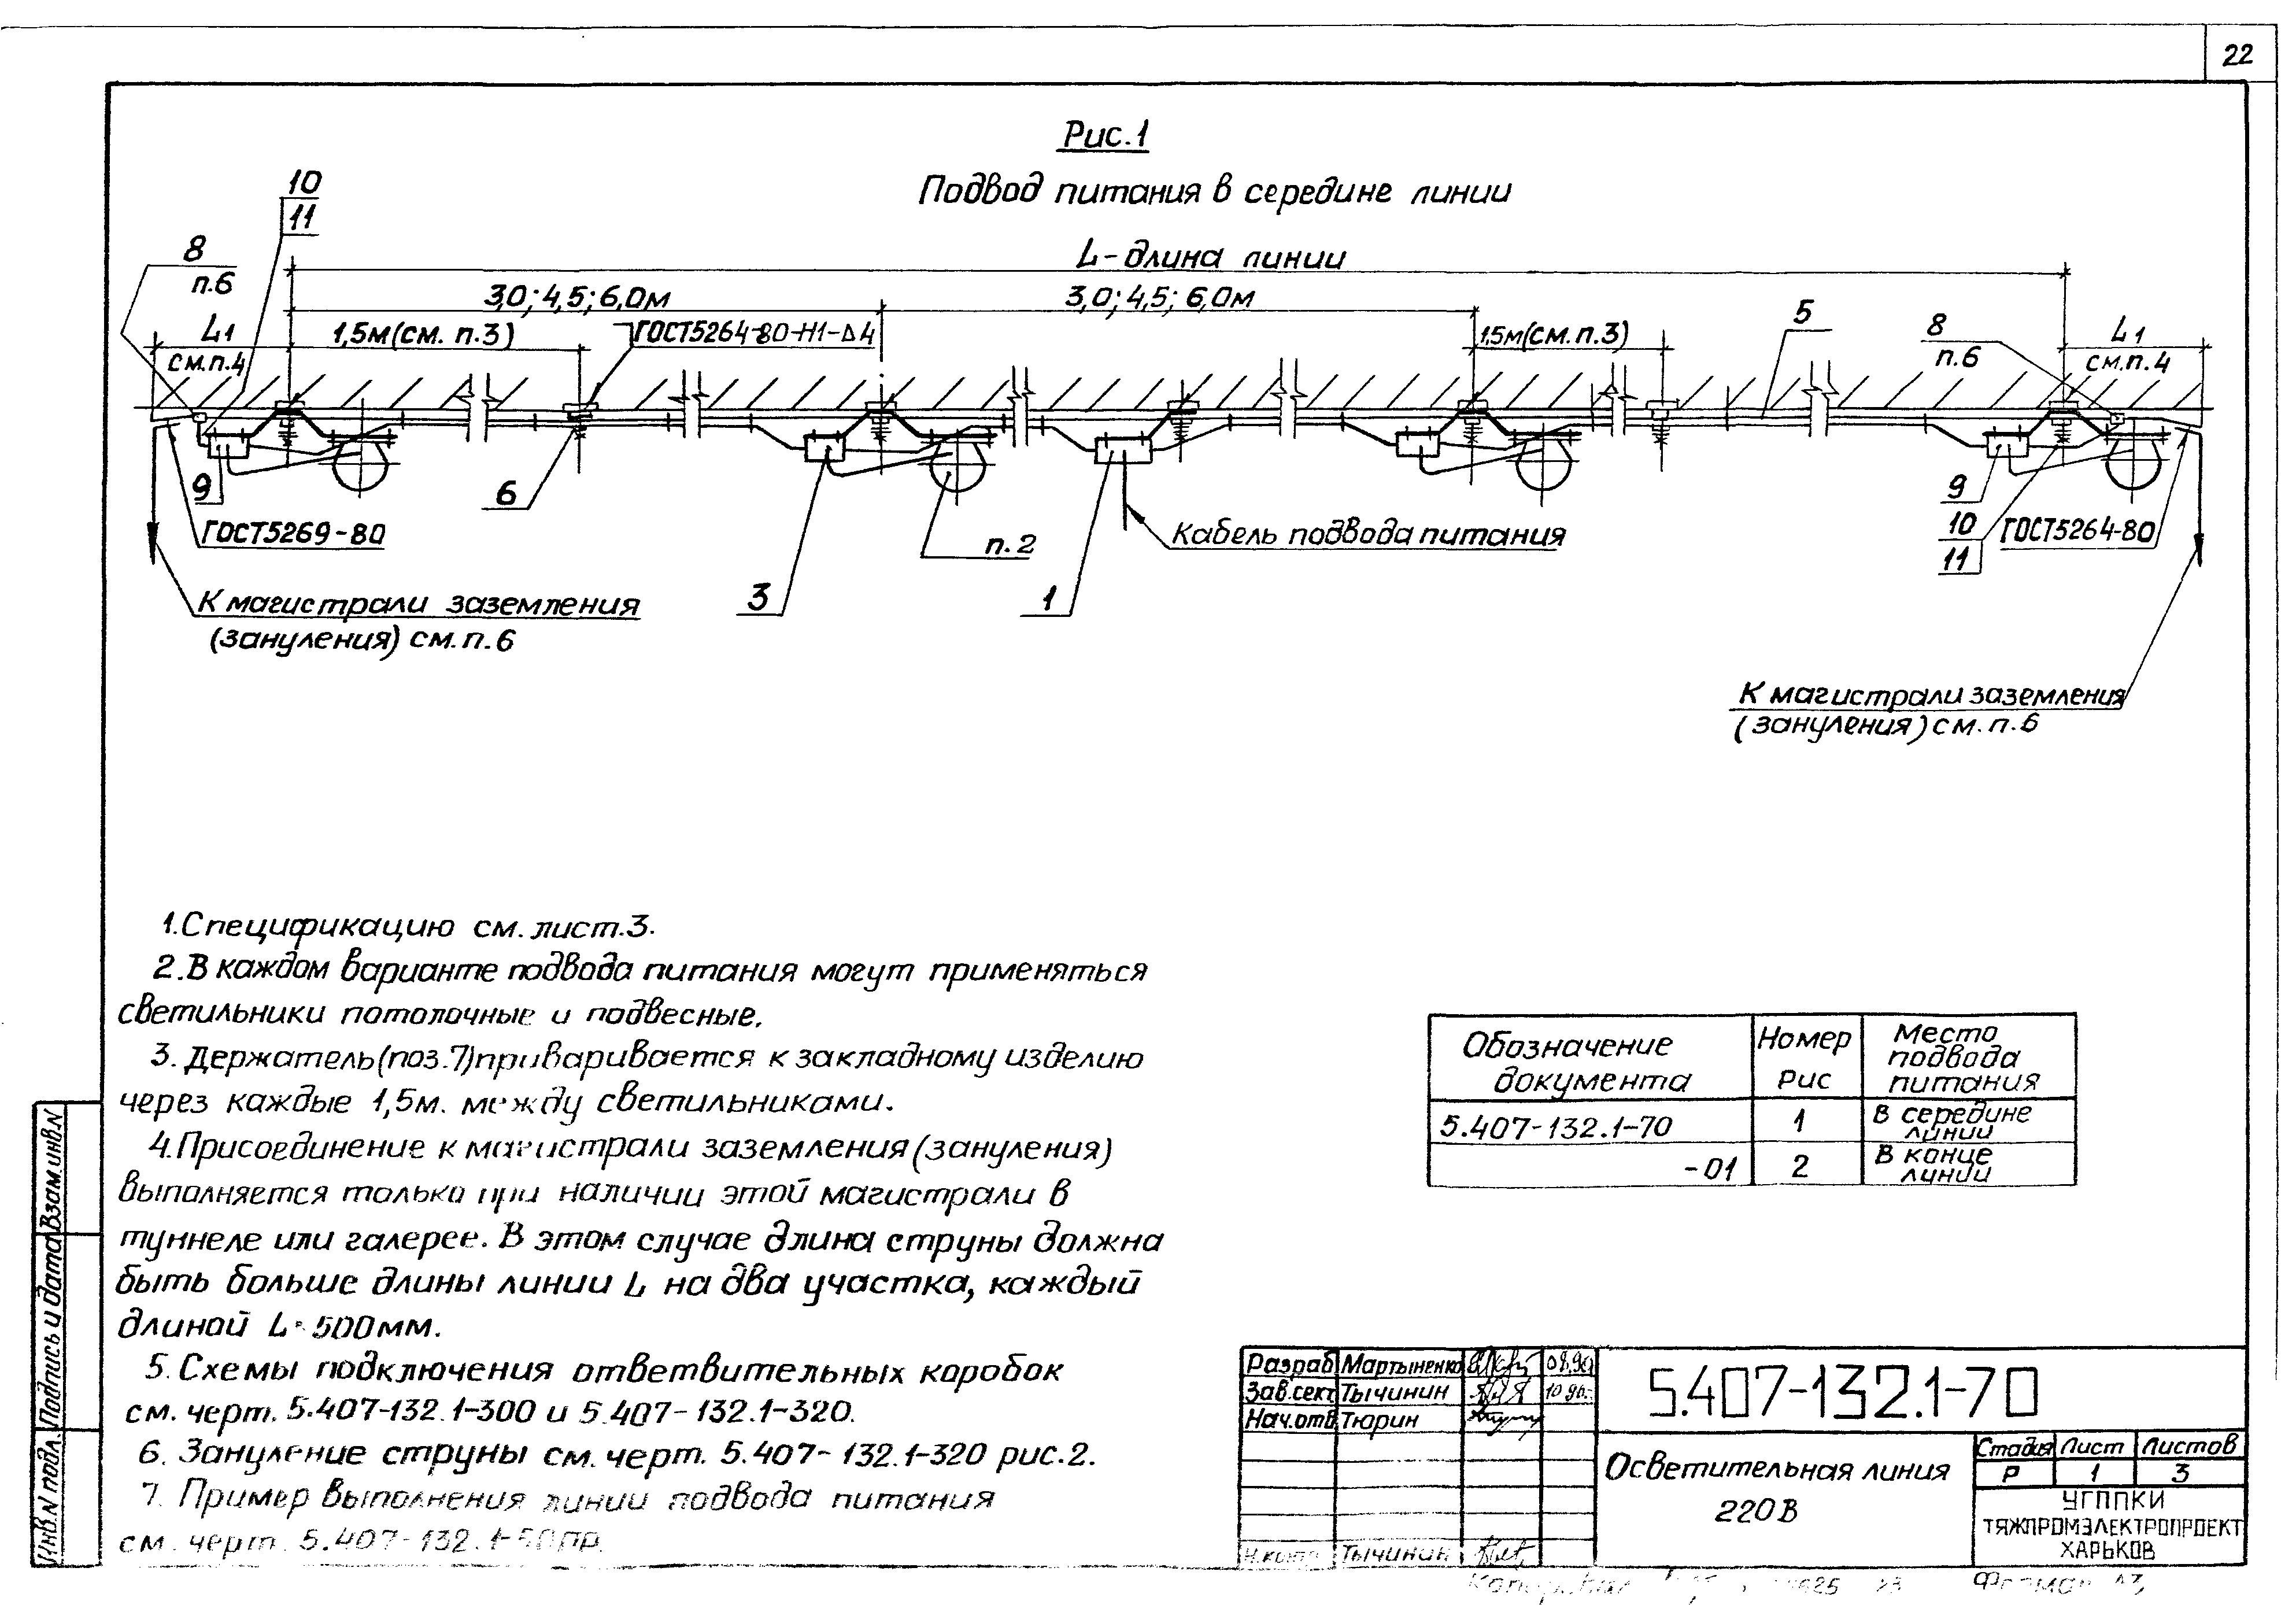 22
Рис.1
Подвод питания в середине линии
10
11
8
п.6
L-длина линии
3,0; 4,5; 6,0м
3,0; 4,5; 6,0м
L1
см.п.4
1,5м(см. п.3)
ГОСТ5264-80-Н1-Δ4
1,5м(см.п.3)
5
8
п.6
L1
см.п.4
9
6
ГОСТ5269-80
п.2
Кабель подвода питания
9
10
11
ГОСТ5264-80
3
1
К магистрали заземления
(зануления) см.п.6
К магистрали заземления
(зануления) см.п.6
1.Спецификацию см. лист.3.
2.В каждом варианте подвода питания могут применяться
светильники потолочные и подвесные.
3. Держатель(поз.7)приваривается к закладному изделию
через каждые 1,5м. между светильниками.
4.Присоединение к магистрали заземления(зануления)
выполняется только при наличии этой магистрали в
туннеле или галерее. В этом случае длина струны должна
быть больше длины линии L на два участка, каждый
длиной L=500мм.
5. Схемы подключения ответвительных коробок
см. черт. 5.407-132.1-300 и 5.407-132.1-320.
6. Зануление струны см. черт. 5.407-132.1-320 рис.2.
7. Пример выполнения линии подвода питания
см. черт. 5.407-132.1-50ПР.
Обозначение документа
Номер Рис
Место подвода питания
5.407-132.1-70
1
В середине линии
-01
2
В конце линии
Взам.инв.N
Подпись и дата
Инв.N подл.
Разраб Мартыненко 08.90
Зав.сект Тычинин 10.90
Нач.отд Тюрин
Н.контр Тычинин
5.407-132.1-70
Осветительная линия
220В
Стадия Лист Листов
Р 1 3
УГППКИ
ТЯЖПРОМЭЛЕКТРОПРОЕКТ
ХАРЬКОВ
Формат А3